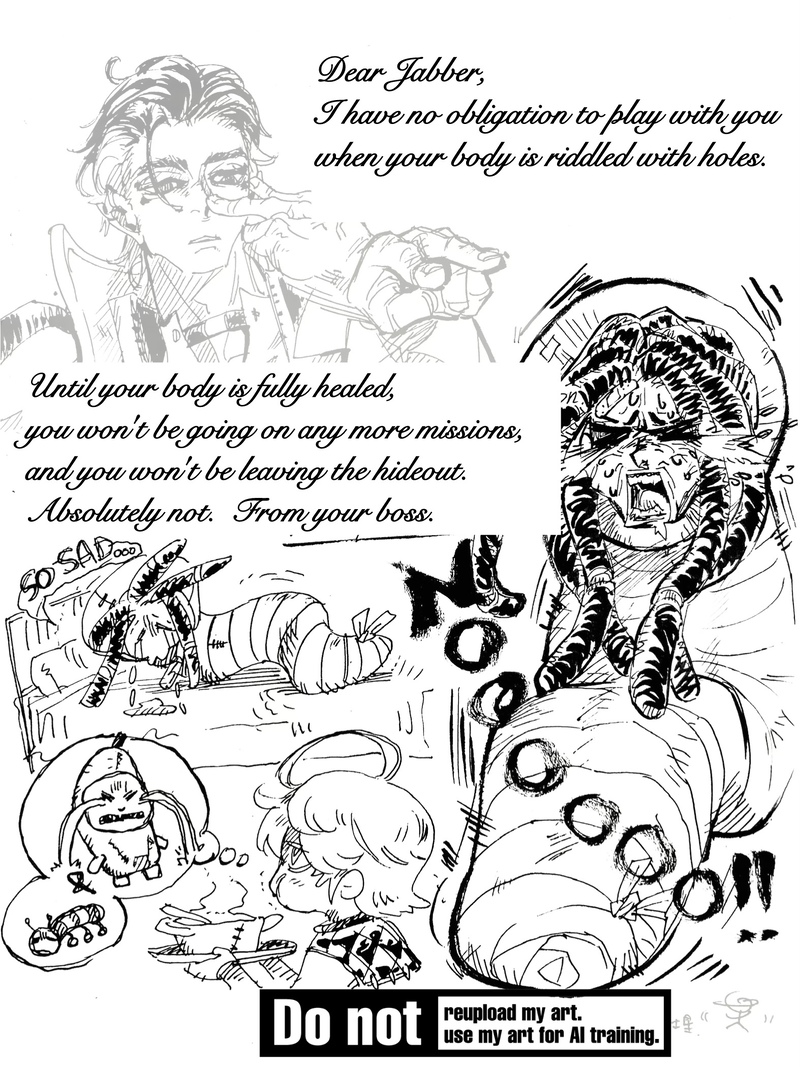 Dear Jabber,
I have no obligation to play with you
when your body is riddled with holes.
Until your body is fully healed,
you won't be going on any more missions,
and you won't be leaving the hideout.
Absolutely not. From your boss.
SO SAD...
NOOOOOOO!!
&
Do not
reupload my art.
use my art for AI training.